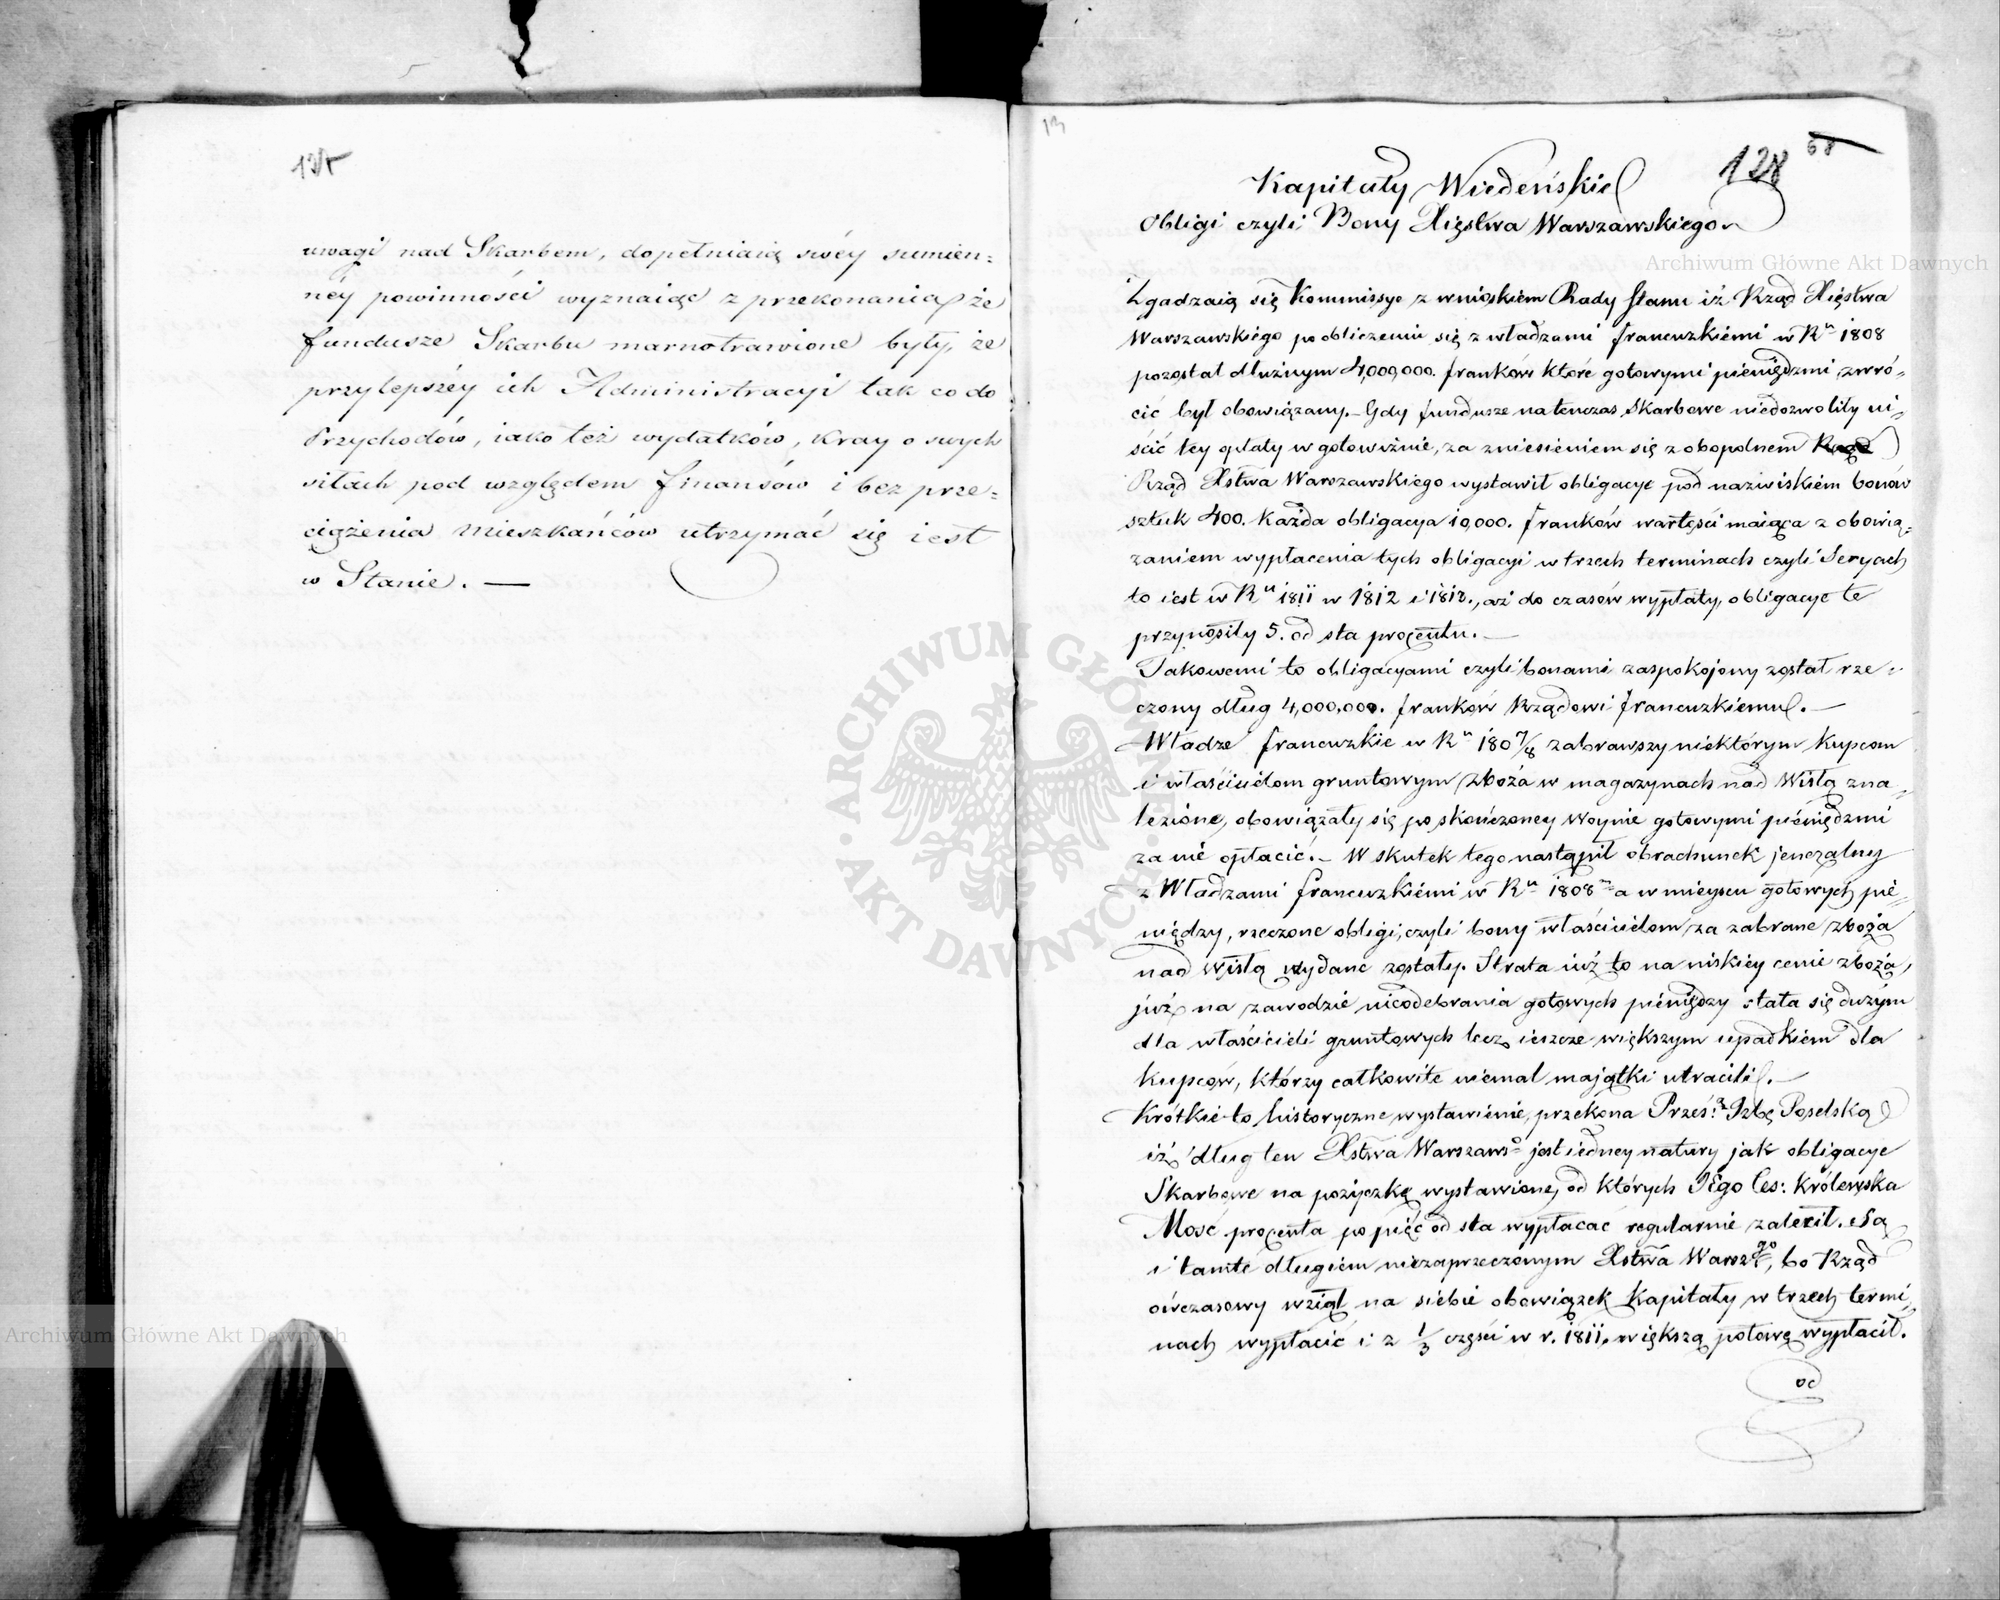 uwagi nad Skarbem, dopełniaią swéy sumien=
néy powinności wyznaiąc z przekonania że
fundusze Skarbu marnotrawione były, że
przylepszéy ich Administracyi tak co do
Przychodów, iako też wydatków, Kray o swych
siłach pod względem finansów i bez prze=
ciążenia Mieszkańców utrzymać się iest
w Stanie. —
13
128
68
Kapitały Wiedeńskie
Obligi czyli Bony Xięstwa Warszawskiego
Zgadzaią się Kommissye z wnioskiem Rady Stanu iż Rząd Xięstwa
Warszawskiego po obliczeniu się z władzami francuzkiémi w Ru 1808
pozostał dłużnym 4,000,000. franków które gotowymi piéniędzmi zwró-
cić był obowiązany. – Gdy fundusze natenczas Skarbowe niedozwoliły ui=
ścić tey opłaty w gotowiźnie, za zniesieniem się z obopolnem
Rząd Xstwa Warszawskiego wystawił obligacye pod nazwiskiém bonów
sztuk 400. Każda obligacya 10,000. franków wartości maiąca z obowią=
zaniem wypłacenia tych obligacyi w trzech terminach czyli Seryach
to iest w Ru 1811 w 1812 i 1813., aż do czasów wypłaty, obligacye te
przynosiły 5. od sta procentu. —
Takowemi to obligacyami czyli bonami zaspokojony został rze=
czony dług 4,000,000. franków Rządowi francuzkiemu. —
Władze francuzkie w Ru 1807/8 zabrawszy niektórym Kupcom
i właścicielom gruntowym zboża w magazynach nad Wisłą zna=
lezione, obowiązały się po skończoney Woynie gotowymi piéniędzmi
za nié opłacić. – W skutek tego nastąpił obrachunek jeneralny
z Władzami francuzkiémi w Ru 1808 a w mieyscu gotowych pié=
niędzy, rzeczone obligi, czyli bony właścicielom za zabrane zboża
nad Wisłą wydane zostały. Strata iuż to na niskiéy cenie zboża,
już na zawodzie nieodebrania gotowych piéniędzy stała się dużym
dla właścicieli gruntowych lecz ieszcze większym upadkiém dla
Kupców, którzy całkowite niemal majątki utracili. —
Krótkié to historyczne wystawiénie, przekona Prześ: Izbę Poselską
iż dług ten Xstwa Warszaws° jest iedney natury jak obligacye
Skarbowe na pożyczkę wystawione, od których JEgo Ces: Królewska
Mość procenta po pięć od sta wypłacać regularnie zalecił. Są
i tamte długiém niezaprzeczonym Xstwa Warszgo, bo Rząd
ówczasowy wziął na siebie obowiązek Kapitały w trzech termi=
nach wypłacić i z 1/3 części w r. 1811. większą połowę wypłacił.
od
Archiwum Główne Akt Dawnych
Archiwum Główne Akt Dawnych
ARCHIWUM GŁÓWNE AKT DAWNYCH